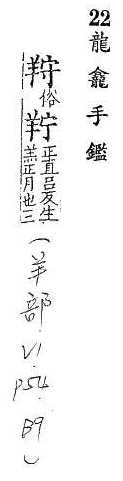 22 龍龕手鑑
俗羜正直呂反生
羔正月也三
(羊部 V1 P54 B9)